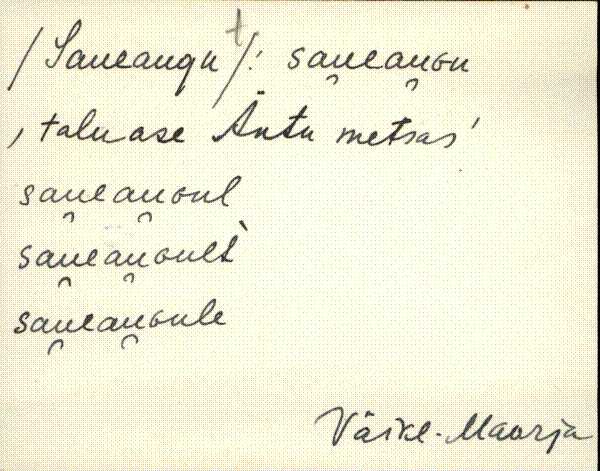 t
/Saueaugu/: sau̯eau̯ɢu
, taluase Äntu metsas'
sau̯eau̯ɢul
sau̯eau̯ɢul̀t
sau̯eau̯ɢule
Väike-Maarja